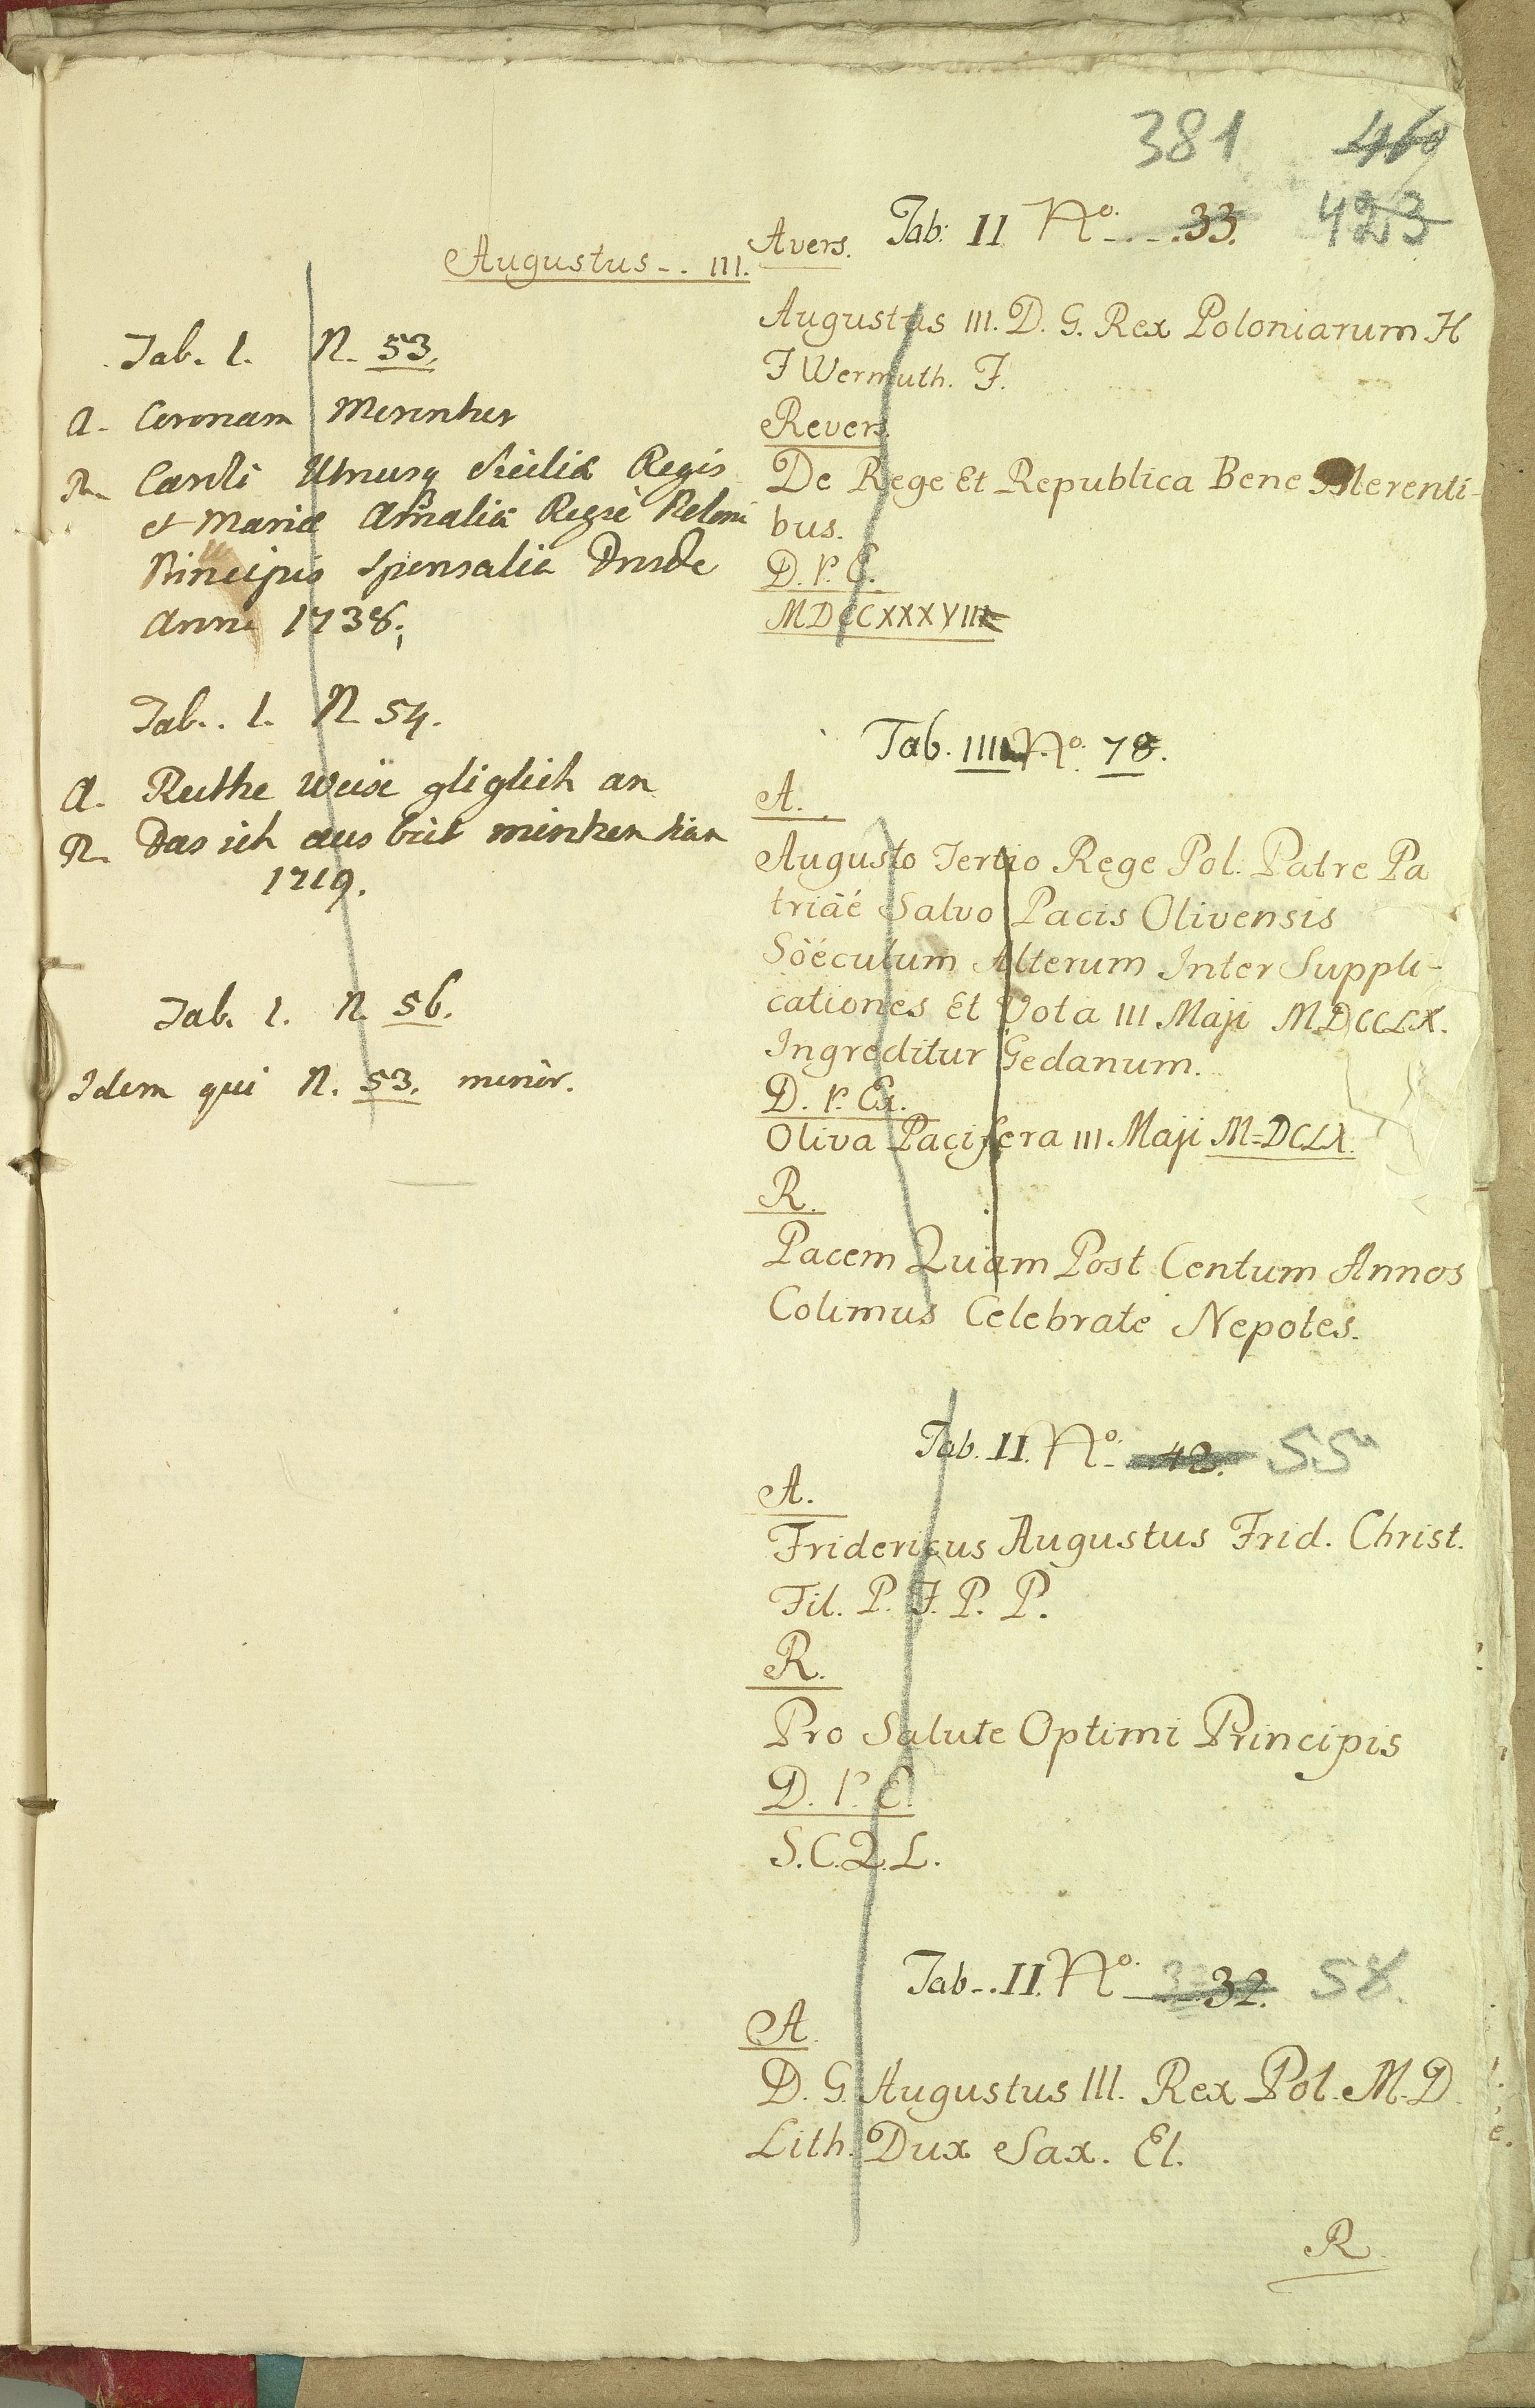 381 460
423
Augustus - - III.
Tab. I. N. 53.
A. Coronam Merenher
R. Caroli Utriusq Siciliæ Regis
et Mariæ Amaliæ Regiè Poloni
Principis Sponsalia Dresde
Anno 1738.
Tab. . I. N 54.
A. Ruthe Weise gliglich an
R. Das ich aus beit minken kan
1719.
Tab. I. N. 56.
Idem qui N. 53. minor.
Avers. Tab: II Nº. - . - . 33.
Augustus III. D. G. Rex Poloniarum H
F Wermuth. F.
Revers.
De Rege Et Republica Bene Merenti-
bus.
D. r. E.
MDCCXXXVIII
Tab. IIII Nº. 78.
A.
Augusto Tertio Rege Pol. Patre Pa
triäé Salvo Pacis Olivensis
Söéculum Alterum Inter Suppli-
cationes Et Vota III Maji MDCCLX.
Ingreditur Gedanum.
D. r. Ex.
Oliva Pacifera III Maji M=DCLX.
R.
Pacem Quam Post Centum Annos
Colimus Celebrate Nepotes.
Tab. II. Nº. - 42. 55
A.
Fridericus Augustus Frid. Christ.
Fil. P. J. P. P.
R.
Pro Salute Optimi Principis
D. r. E.
S. C. Q. L.
Tab - . II. Nº. 32. 58.
A.
D. G. Augustus III. Rex Pol. M. D.
Lith. Dux Sax. El.
R.